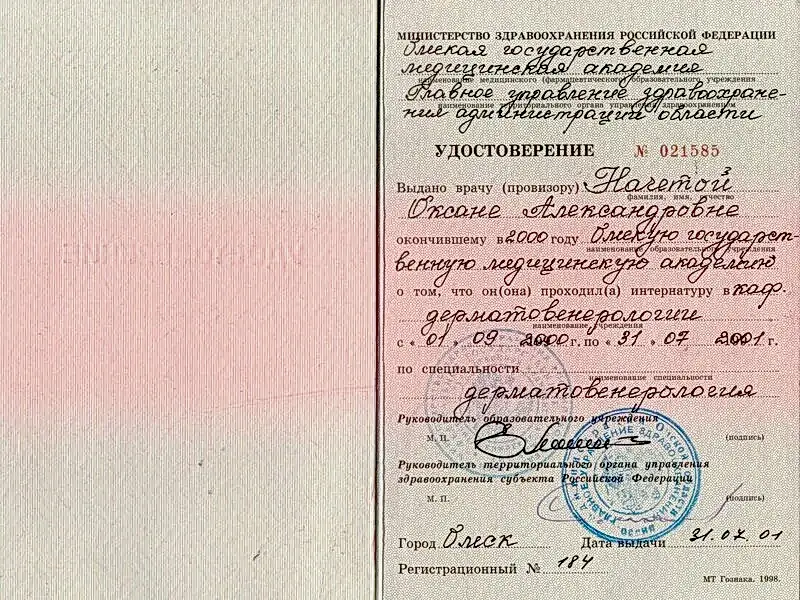 МИНИСТЕРСТВО ЗДРАВООХРАНЕНИЯ РОССИЙСКОЙ ФЕДЕРАЦИИ
Омская государственная
медицинская академия
наименование медицинского (фармацевтического) образовательного учреждения
Главное управление здравоохране-
наименование территориального органа управления здравоохранением
ния администрации области
УДОСТОВЕРЕНИЕ № 021585
Выдано врачу (провизору) Начетой
фамилия, имя, отчество
Оксане Александровне
окончившему в 2000 году Омскую государст-
наименование образовательного учреждения
венную медицинскую академию
о том, что он(она) проходил(а) интернатуру в каф.
дерматовенерологии
наименование учреждения
с « 01 » 09 2000 г. по « 31 » 07 2001 г.
по специальности
наименование специальности
дерматовенерология
Руководитель образовательного учреждения
М. П. (подпись)
Руководитель территориального органа управления
здравоохранения субъекта Российской Федерации
М. П. (подпись)
Город Омск Дата выдачи 31.07.01
Регистрационный № 184
МТ Гознака. 1998.